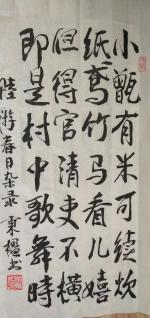 小甑有米可续炊
纸鸢竹马看儿嬉
但得官清吏不横
即是村中歌舞時
陸游春日杂录 東楹书